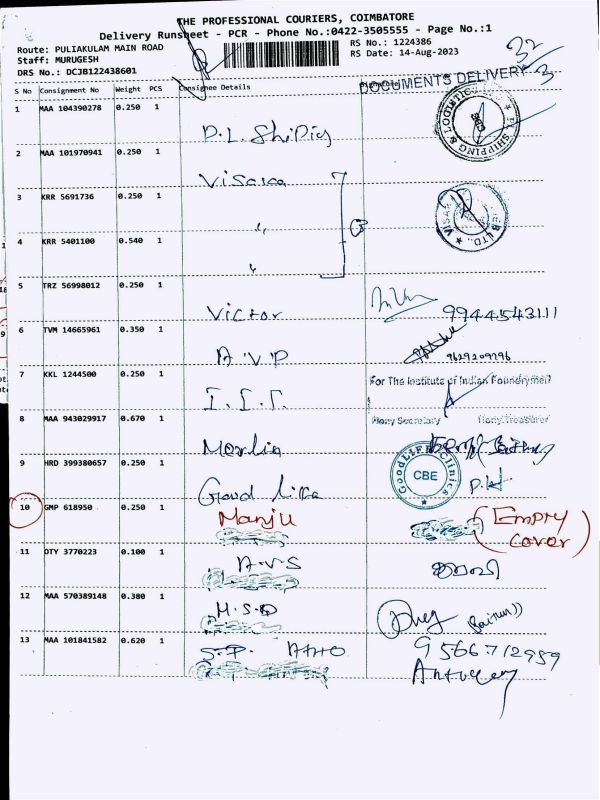 THE PROFESSIONAL COURIERS, COIMBATORE
Delivery Runsheet - PCR - Phone No.:0422-3505555 - Page No.:1
Route: PULIAKULAM MAIN ROAD
RS No.: 1224386
Staff: MURUGESH
RS Date: 14-Aug-2023
DRS No.: DCJB122438601
32
3
DOCUMENTS DELIVERY
S No Consignment No Weight PCS Consignee Details
1 MAA 104390278 0.250 1
P.L. Shipig
2 MAA 101970941 0.250 1
Visaka
3 KRR 5691736 0.250 1
"
4 KRR 5401100 0.540 1
"
5 TRZ 56998012 0.250 1
Victor 9944543111
6 TVM 14665961 0.350 1
A.V.P 9629209796
7 KKL 1244500 0.250 1
For The Institute of Indian Foundrymen
I.I.F.
8 MAA 943029917 0.670 1
Hony Secretary Hony.Treasurer
Merlin
9 HRD 399380657 0.250 1
GoodLIFE Clinics
CBE
P.H
Good like
10 GMP 618950 0.250 1
Manju (Empry cover)
11 OTY 3770223 0.100 1
A.V.S
12 MAA 570389148 0.380 1
M.S.D
13 MAA 101841582 0.620 1
S.P. Auto 9566712959